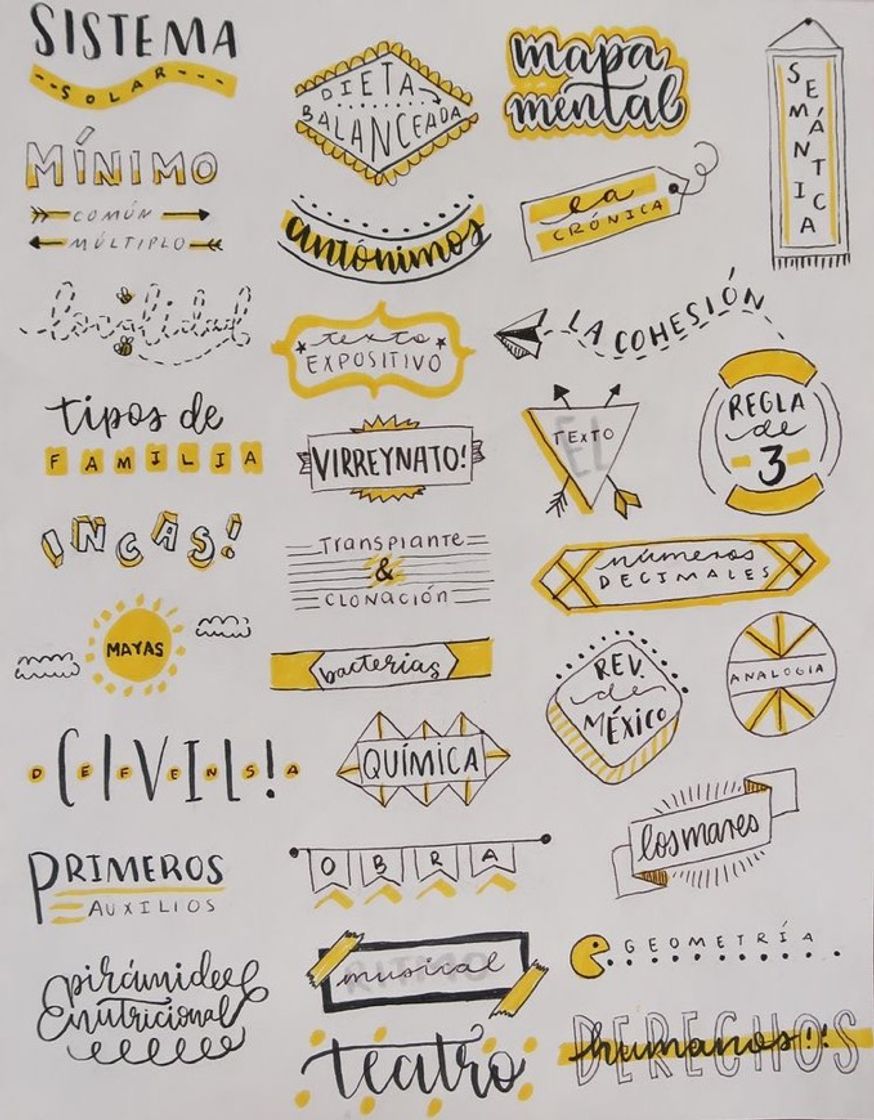 SISTEMA
SOLAR
MÍNIMO
COMÚN
MÚLTIPLO
localidad
tipos de
FAMILIA
INCAS!
MAYAS
DEFENSA
CIVIL!
PRIMEROS
AUXILIOS
pirámide
nutricional
DIETA
BALANCEADA
antónimos
texto
EXPOSITIVO
VIRREYNATO!
Transplante
&
CLONACIÓN
bacterias
QUÍMICA
OBRA
RITMO
musical
teatro
mapa
mental
la
CRÓNICA
SEMÁNTICA
LA COHESIÓN
EL
TEXTO
REGLA
de
3
números
DECIMALES
REV.
de
MÉXICO
ANALOGÍA
los mares
GEOMETRÍA
DERECHOS
humanos!!